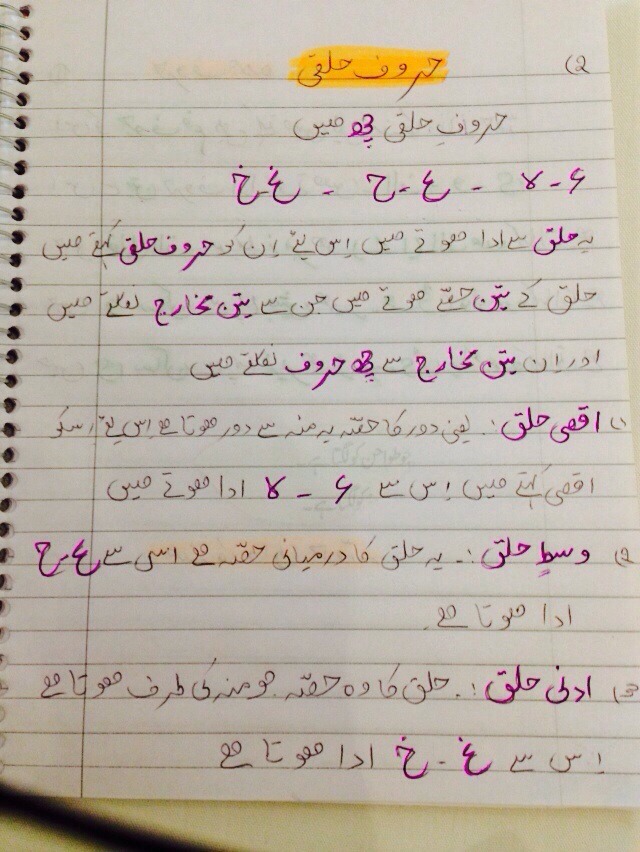 (2 حروف حلقی
حروفِ حلقی چھ ھیں
ء - ہ - ع - ح - غ - خ
یہ حلق سے ادا ھوتے ھیں اِس لئے اِن کو حروف حلقی کہتے ھیں
حلق کے تین حصّے ھوتے ھیں جن سے تین مخارج نکلتے ھیں
اور ان تین مخارج سے چھ حروف نکلتے ھیں
(1 اقصٰی حلق :. یعنی دور کا حصّہ یہ منہ سے دور ھوتا ھے اِس لئے اسکو
اقصٰی کہتے ھیں اِس سے ء - ہ ادا ھوتے ھیں
(2 وسطِ حلق :. یہ حلق کا درمیانی حصّہ ھے اسی سے ع - ح
ادا ھوتا ھے
(3 ادنٰی حلق :. حلق کا وہ حصّہ جو منہ کی طرف ھوتا ھے
اِس سے غ - خ ادا ھوتا ھے